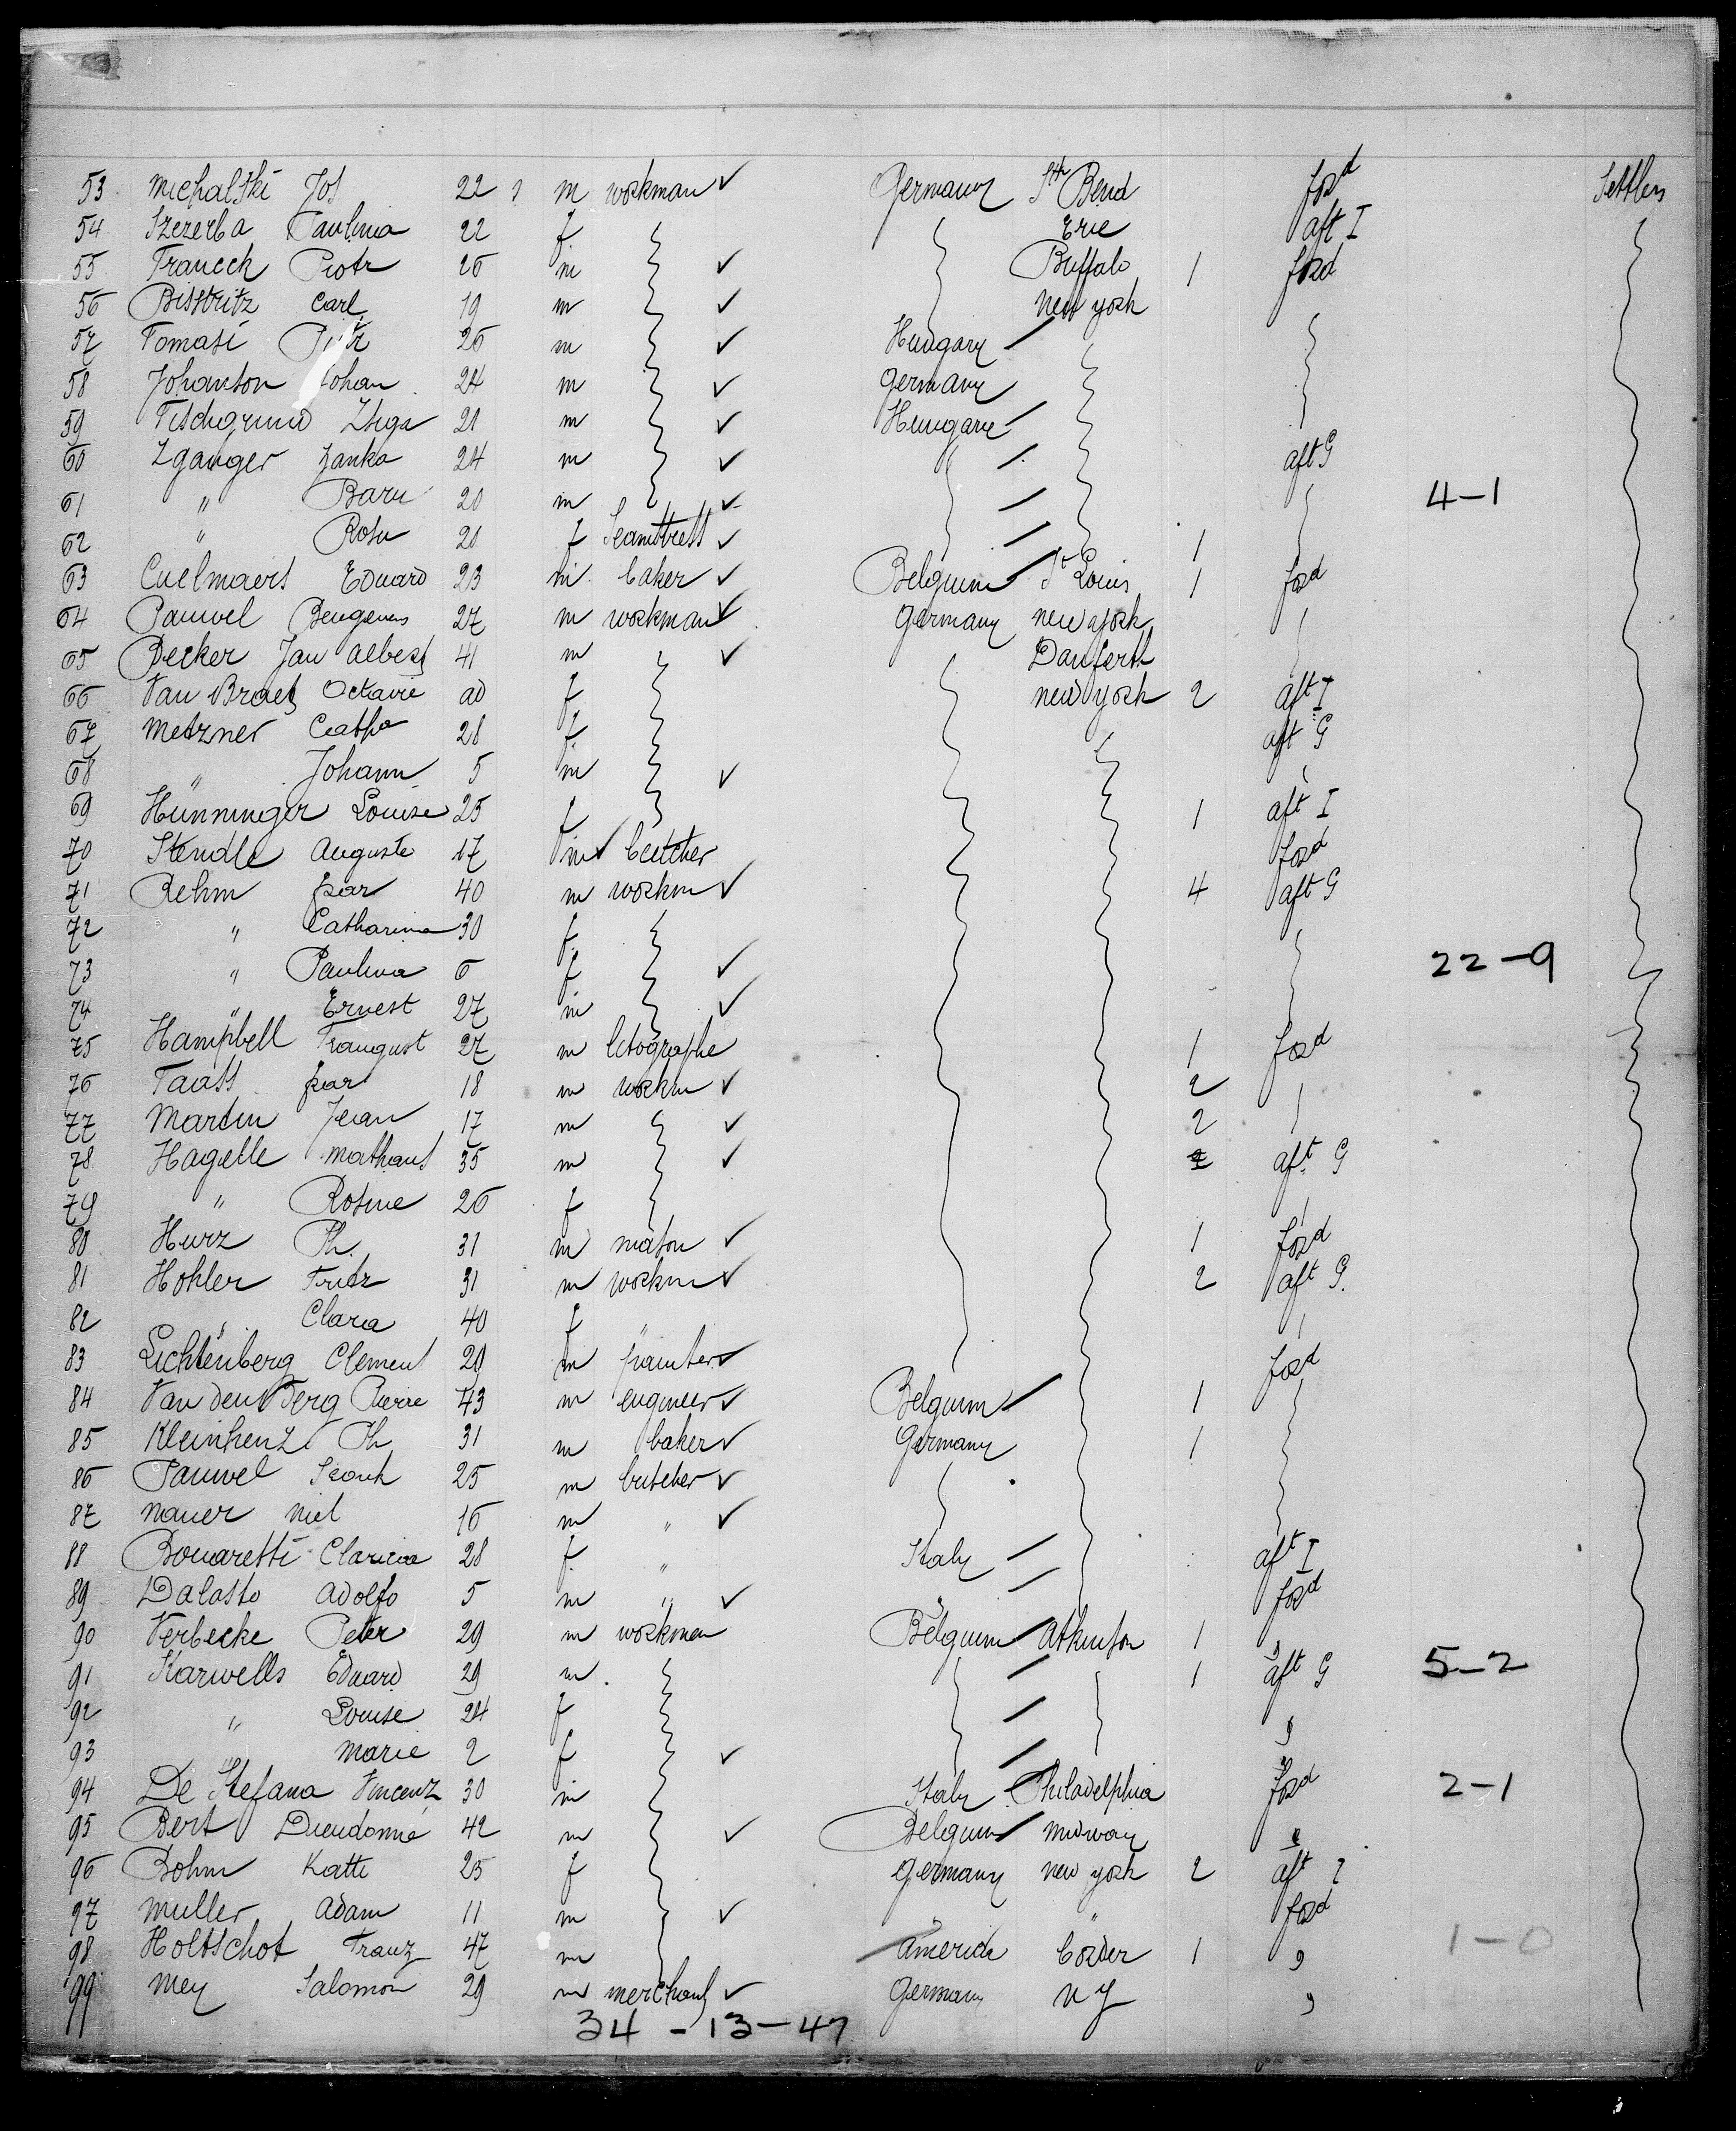 53 Michalski Jos 22 m workman Germany Sth Bend ford Settlers
54 Szezerba Paulina 22 f Erie aft I
55 Franeck Piotr 26 m Buffalo 1 ford
56 Bistritz Carl 19 m New York
57 Tomasi 26 m Hungary
58 Johanson Johan 24 m Germany
59 Tischgrund Ziga 21 m Hungary
60 Zganger Janko 24 m aft G
61 " Baru 20 m 4-1
62 " Rosu 21 f Seamstress 1
63 Cuelmaers Eduard 23 m baker Belgium St Louis 1 ford
64 Pauwel 27 m workman Germany new york
65 Decker Jan Albert 41 m Danforth
66 Van Braet Octavie ad f new york 2 aft I
67 Metzner Catha 28 f aft G
68 " Johann 5 m
69 Hünninger Louise 25 f 1 aft I
70 Stendle Auguste 17 m butcher ford
71 Rehm 40 m workm 4 aft G
72 " Catharina 30 f
73 " Paulina 6 f 22-9
74 " Ernest 27 m
75 Hampbell Traugust 27 m litographe 1 ford
76 Taass 18 m workm 2
77 Martin Jean 17 m 2
78 Hagelle Mathaus 35 m aft G
79 " Rosine 26 f
80 Hurz Ph. 31 m mason 1 ford
81 Hohler Fritz 31 m workm 2 aft G.
82 " Clara 40 f "
83 Lichtenberg Clement 20 m painter ford
84 Van den Berg Pierre 43 m engineer Belgium 1
85 Kleinhenz Ph 31 m baker Germany 1
86 Pauwel 25 m butcher
87 Nauer 16 m "
88 Bonaretti Claricia 28 f " Italy aft I
89 Dalasto Adolfo 5 m " ford
90 Verbecke Peter 29 m workman Belgium Atkinson 1 "
91 Karwells Eduard 29 m 1 aft G 5-2
92 " Louise 24 f "
93 " Marie 2 f "
94 De Stefana Vincenz 30 m Italy Philadelphia ford 2-1
95 Bert Dieudonné 42 m Belgium Midway "
96 Bohm Katti 25 f Germany new york 2 aft I
97 Muller Adam 11 m " " ford
98 Holtschot Franz 47 m America 1 " 1-0
99 Mey Salomon 29 m merchant Germany N Y "
34-13-47